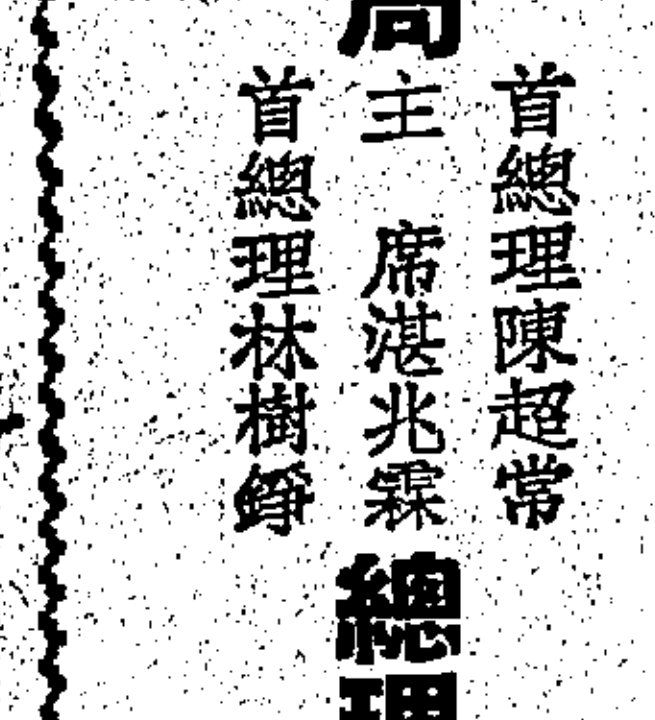 首總理陳超常
主席湛兆霖
首總理林樹錚
總理